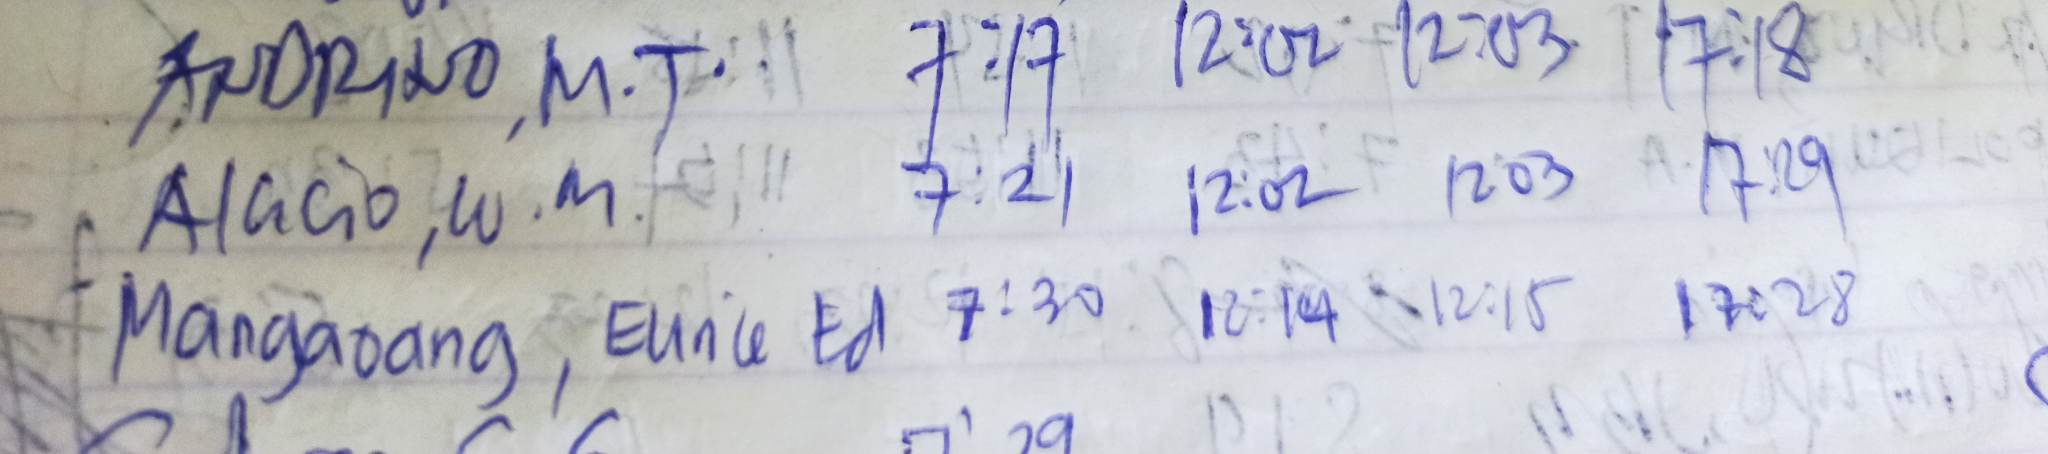 ANDRINO, M.T. 7:17 12:02 12:03 17:18
AlaGio, W.M. 7:21 12:02 1203 17:29
Mangaoang, Eunice Ed 7:30 12:14 12:15 17:28
29